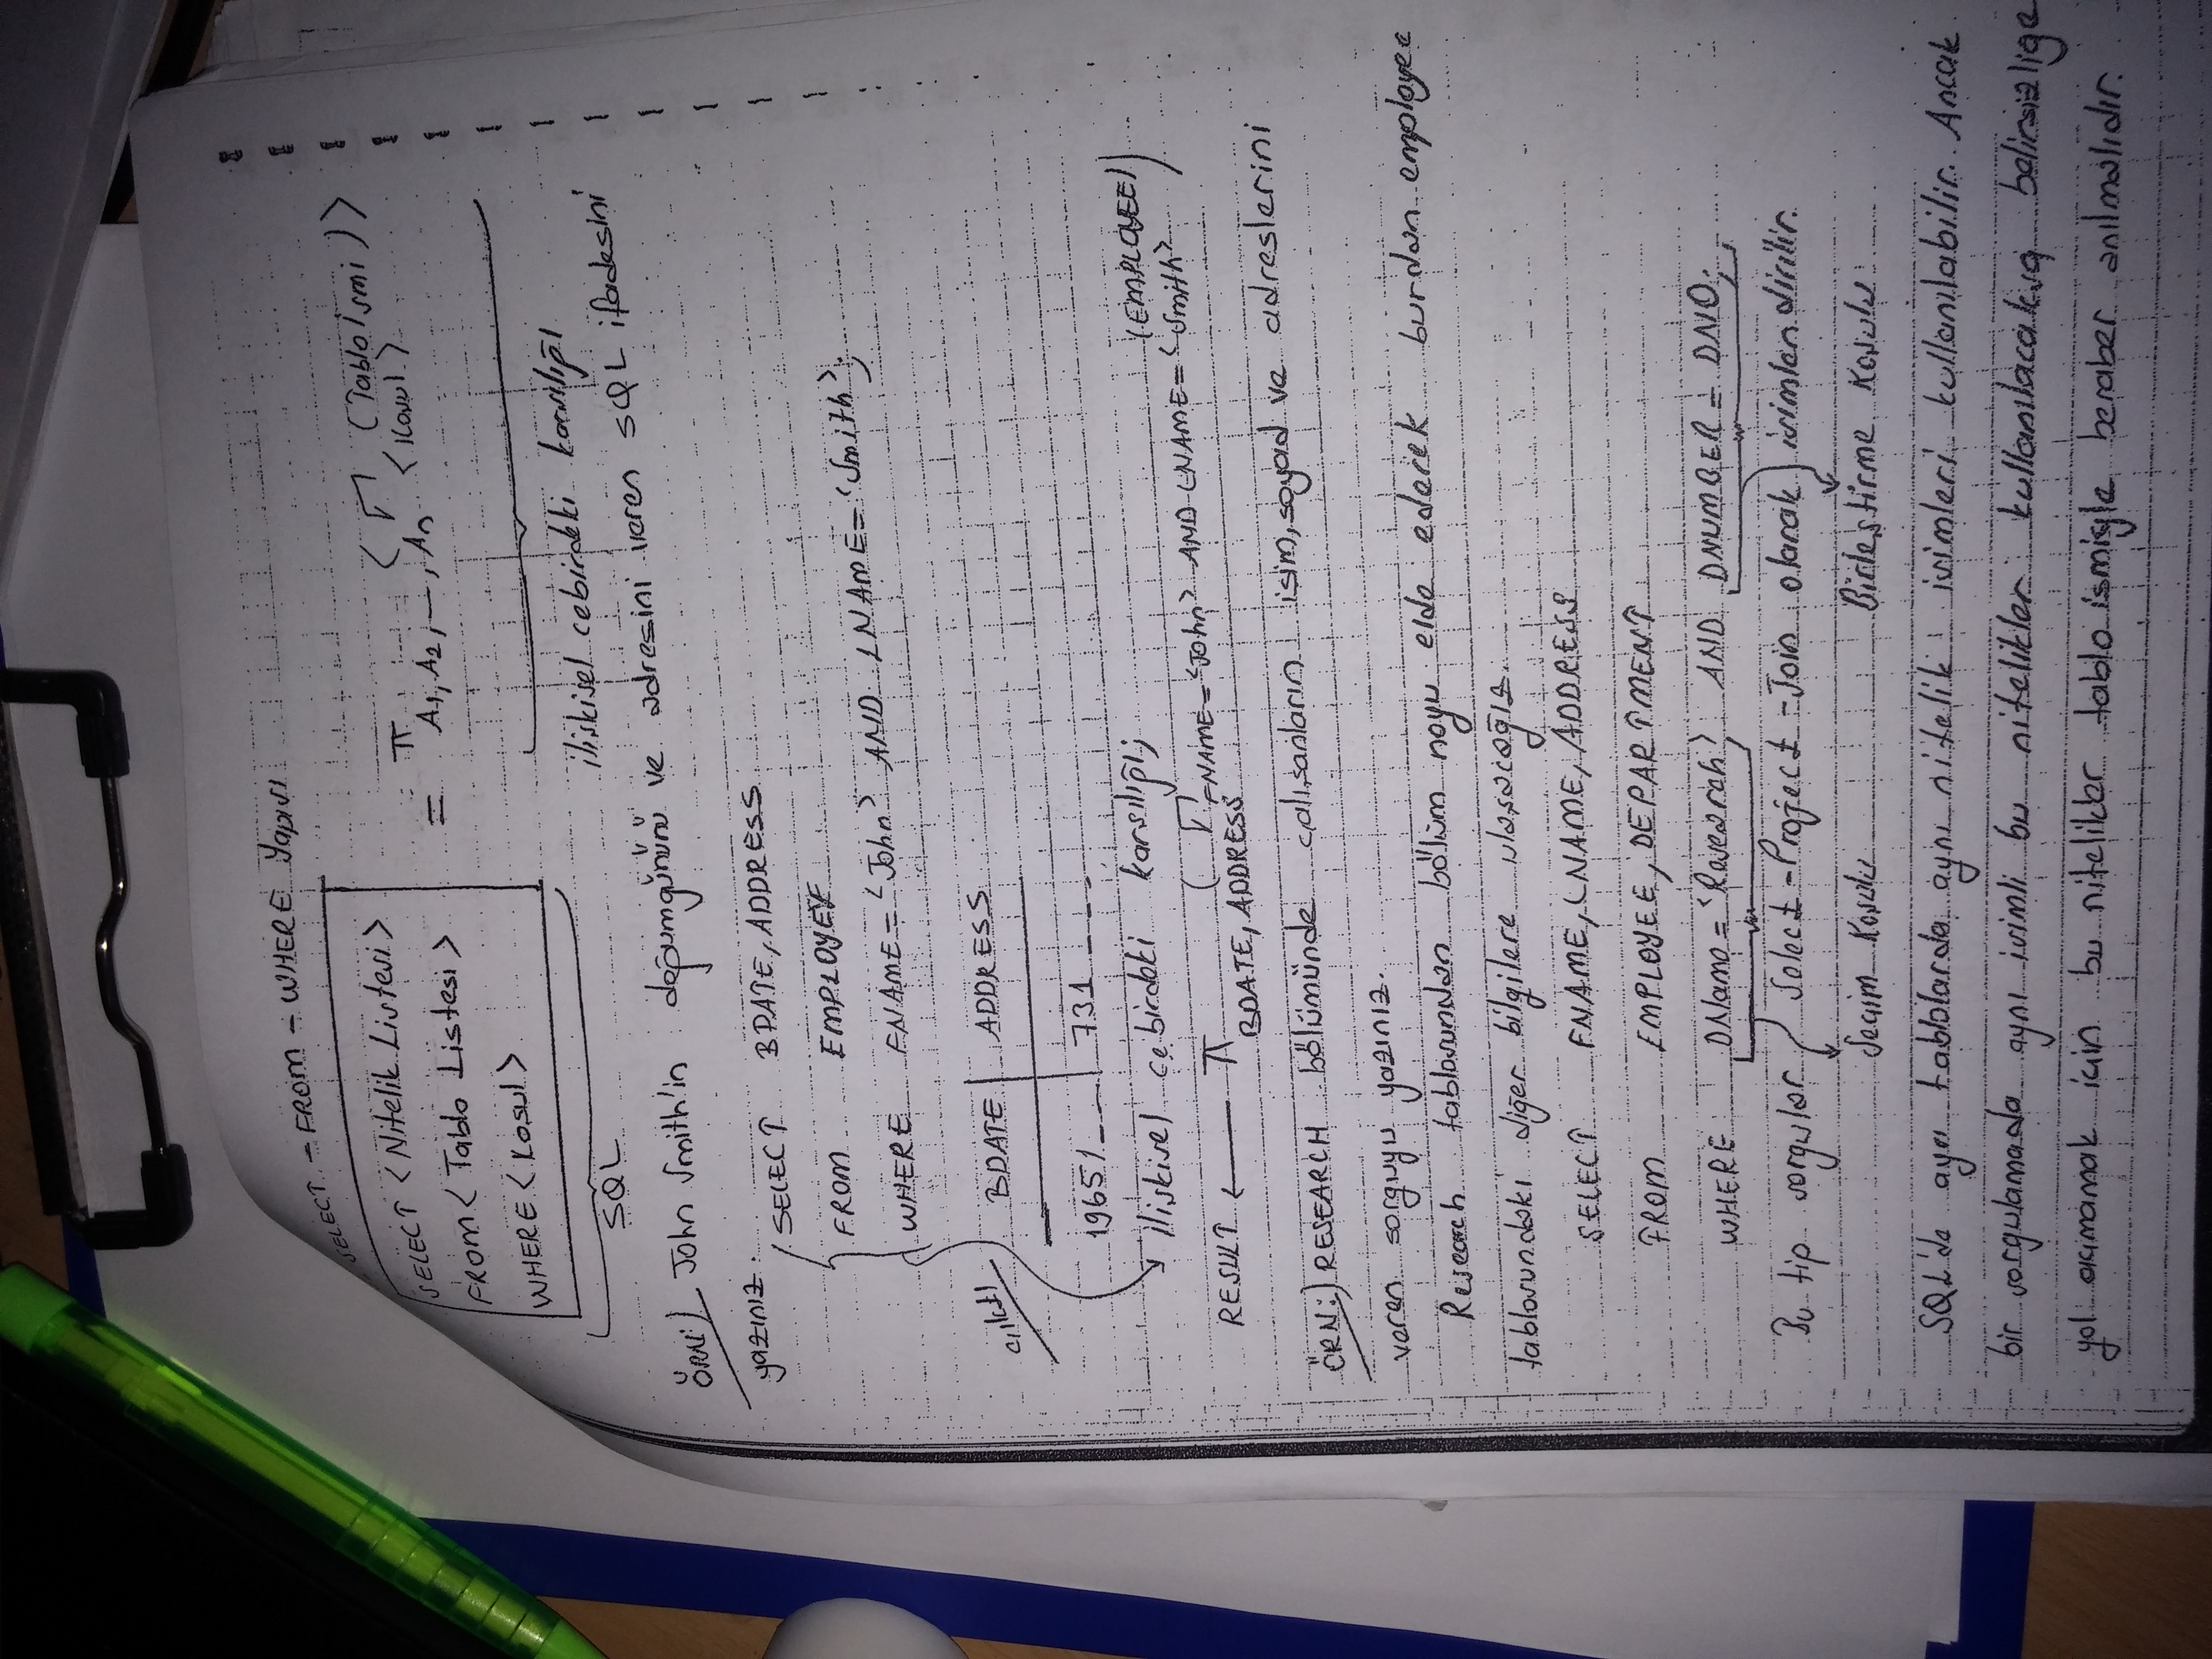 SELECT - FROM - WHERE Yapısı
SELECT <Nitelik Listesi>
FROM < Tablo Listesi >
WHERE < Kosul >
= π A1, A2, —, An < σ <Kosul> (Tablo İsmi) >
SQL
ilişkisel cebirdeki karşılığı
ÖRN:) John Smith'in doğumgününü ve adresini veren SQL ifadesini
yazınız.
SELECT BDATE, ADDRESS
FROM EMPLOYEE
WHERE FNAME = 'John' AND LNAME = 'Smith';
çıktı
BDATE | ADDRESS
1965/_ _ _ | 731 _ _ _ _
ilişkisel cebirdeki karşılığı;
RESULT ← π BDATE, ADDRESS ( σ FNAME = 'John' AND LNAME = 'Smith' (EMPLOYEE) )
ÖRN:) RESEARCH bölümünde çalışanların isim, soyad ve adreslerini
veren sorguyu yazınız.
Research tablosundan bölüm noyu elde ederek burdan employee
tablosundaki diğer bilgilere ulaşacağız.
SELECT FNAME, LNAME, ADDRESS
FROM EMPLOYEE, DEPARTMENT
WHERE DName = 'Research' AND DNUMBER = DNO;
Bu tip sorgular Select - Project - Join olarak isimlendirilir.
Seçim Koşulu Birleştirme Koşulu
SQL'de ayrı tablolarda aynı nitelik isimleri kullanılabilir. Ancak
bir sorgulamada aynı isimli bu nitelikler kullanılacaksa belirsizliğe
yol açmamak için bu nitelikler tablo ismiyle beraber anılmalıdır.